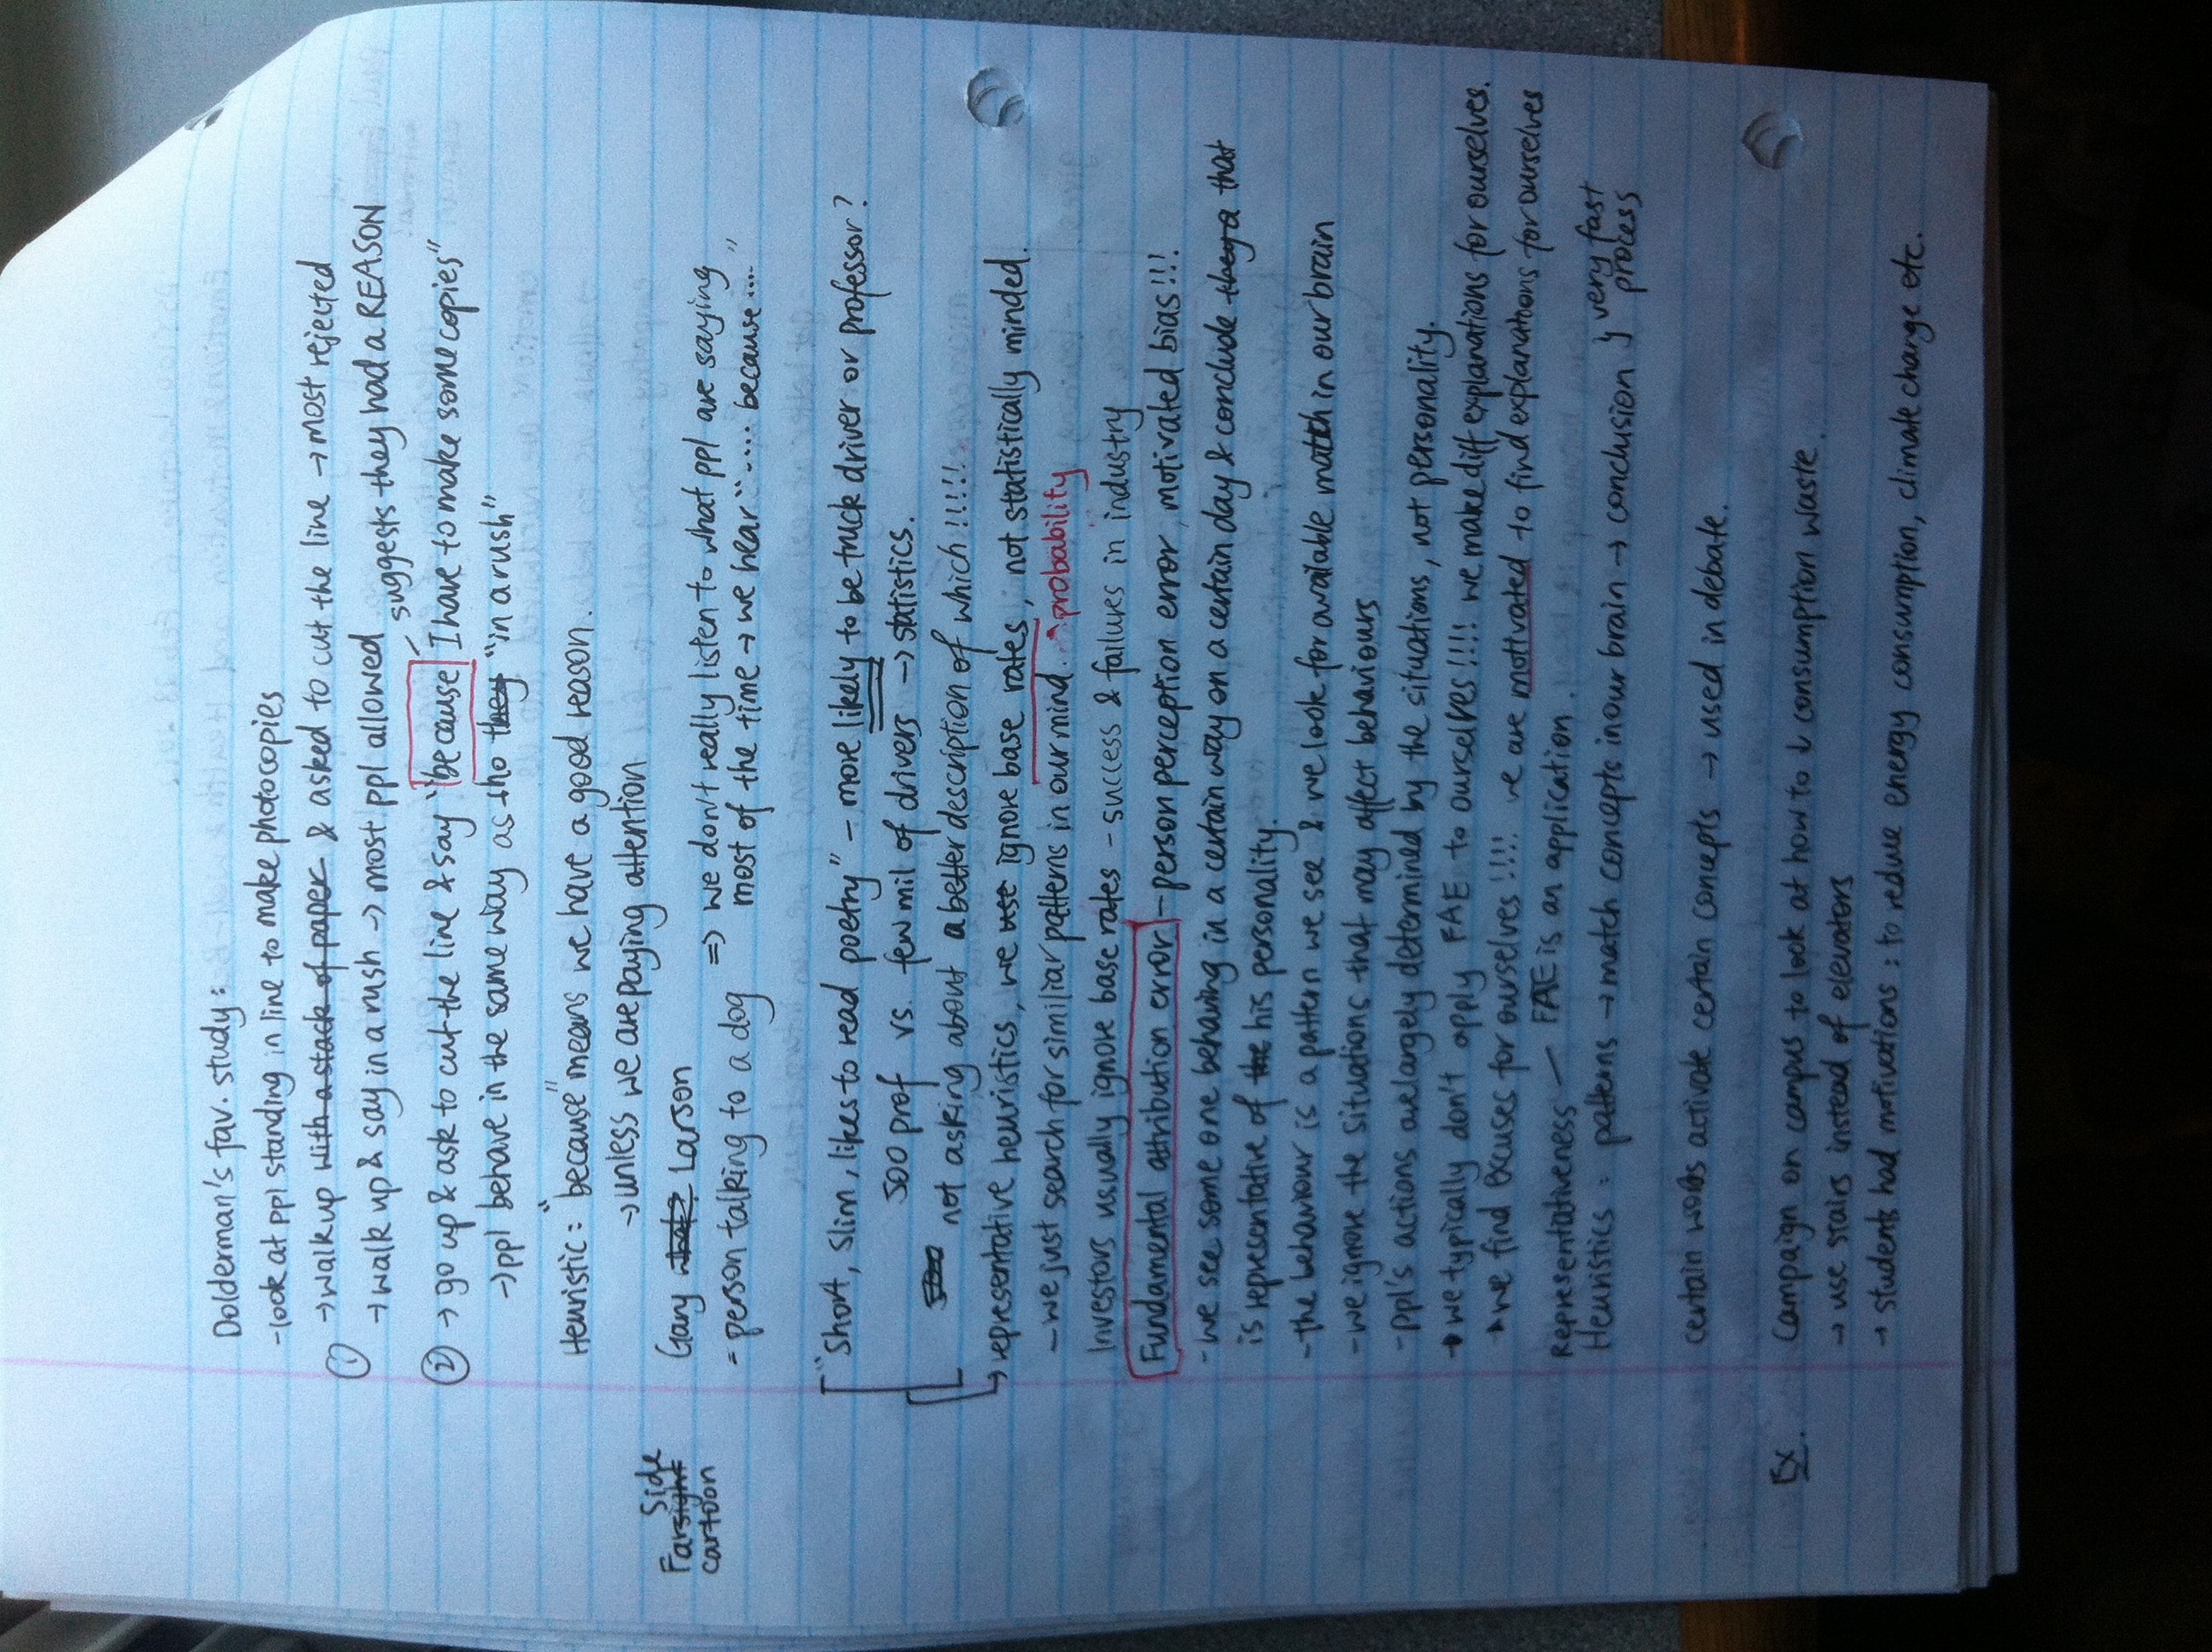 Dolderman's fav. study:
-look at ppl standing in line to make photocopies
① →walk up with a stack of paper & asked to cut the line → most rejected
→walk up & say in a rush → most ppl allowed
suggests they had a REASON
② → go up & ask to cut the line & say "because I have to make some copies"
→ppl behave in the same way as tho they "in a rush"
Heuristic: "because" means we have a good reason.
→unless we are paying attention
Farsight Side
cartoon
Gary Larson
= person talking to a dog
⇒ we don't really listen to what ppl are saying
most of the time → we hear "..... because ...."
"Short, Slim, likes to read poetry" – more likely to be truck driver or professor?
500 prof vs. few mil of drivers → statistics.
not asking about a better description of which !!!!!
→representative heuristics, we use ignore base rates, not statistically minded.
– we just search for similiar patterns in our mind. ^probability
Investors usually ignore base rates – success & failures in industry
Fundamental attribution error – person perception error, motivated bias!!!
-we see some one behaving in a certain way on a certain day & conclude that
is representative of the his personality.
-the behaviour is a pattern we see & we look for available match in our brain
-we ignore the situations that may affect behaviours
-ppl's actions are largely determined by the situations, not personality.
→ we typically don't apply FAE to ourselves!!!! we make diff explanations for ourselves.
→ we find excuses for ourselves !!!! we are motivated to find explanations for ourselves
Representativeness — FAE is an application.
Heuristics: patterns → match concepts in our brain → conclusion } very fast
process
certain words activate certain concepts → used in debate.
Ex. Campaign on campus to look at how to ↓ consumption waste.
→ use stairs instead of elevators
→ students had motivations: to reduce energy consumption, climate change etc.